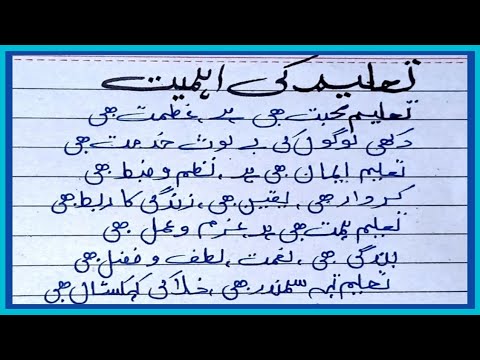 تعلیم کی اہمیت
تعلیم محبت بھی ہے، عظمت بھی
دکھی لوگوں کی بے لوث خدمت بھی
تعلیم ایمان بھی ہے، نظم و ضبط بھی
کردار بھی، یقین بھی، زندگی کا ربط بھی
تعلیم ہمت بھی ہے عزم و عمل بھی
بندگی بھی، نعمت، لطف و فضل بھی
تعلیم تہہ سمندر بھی، خلا کی کہکشاں بھی